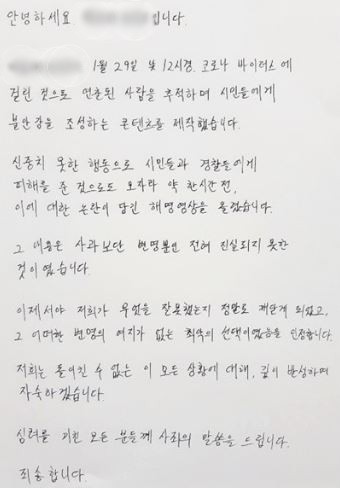 안녕하세요 입니다.
1월 29일 낮 12시경. 코로나 바이러스에
걸린 것으로 연출된 사람을 추적하며 시민들에게
불안감을 조성하는 콘텐츠를 제작했습니다.
신중치 못한 행동으로 시민들과 경찰들에게
피해를 준 것으로도 모자라 약 한시간 전,
이에 대한 논란이 담긴 해명영상을 올렸습니다.
그 내용은 사과보단 변명뿐인 전혀 진실되지 못한
것이였습니다.
이제서야 저희가 무엇을 잘못했는지 정말로 깨닫게 되었고,
그 어떠한 변명의 여지가 없는 최악의 선택이였음을 인정합니다.
저희는 돌이킬 수 없는 이 모든 상황에 대해, 깊이 반성하며
자숙하겠습니다.
심려를 끼친 모든 분들께 사죄의 말씀을 드립니다.
죄송합니다.